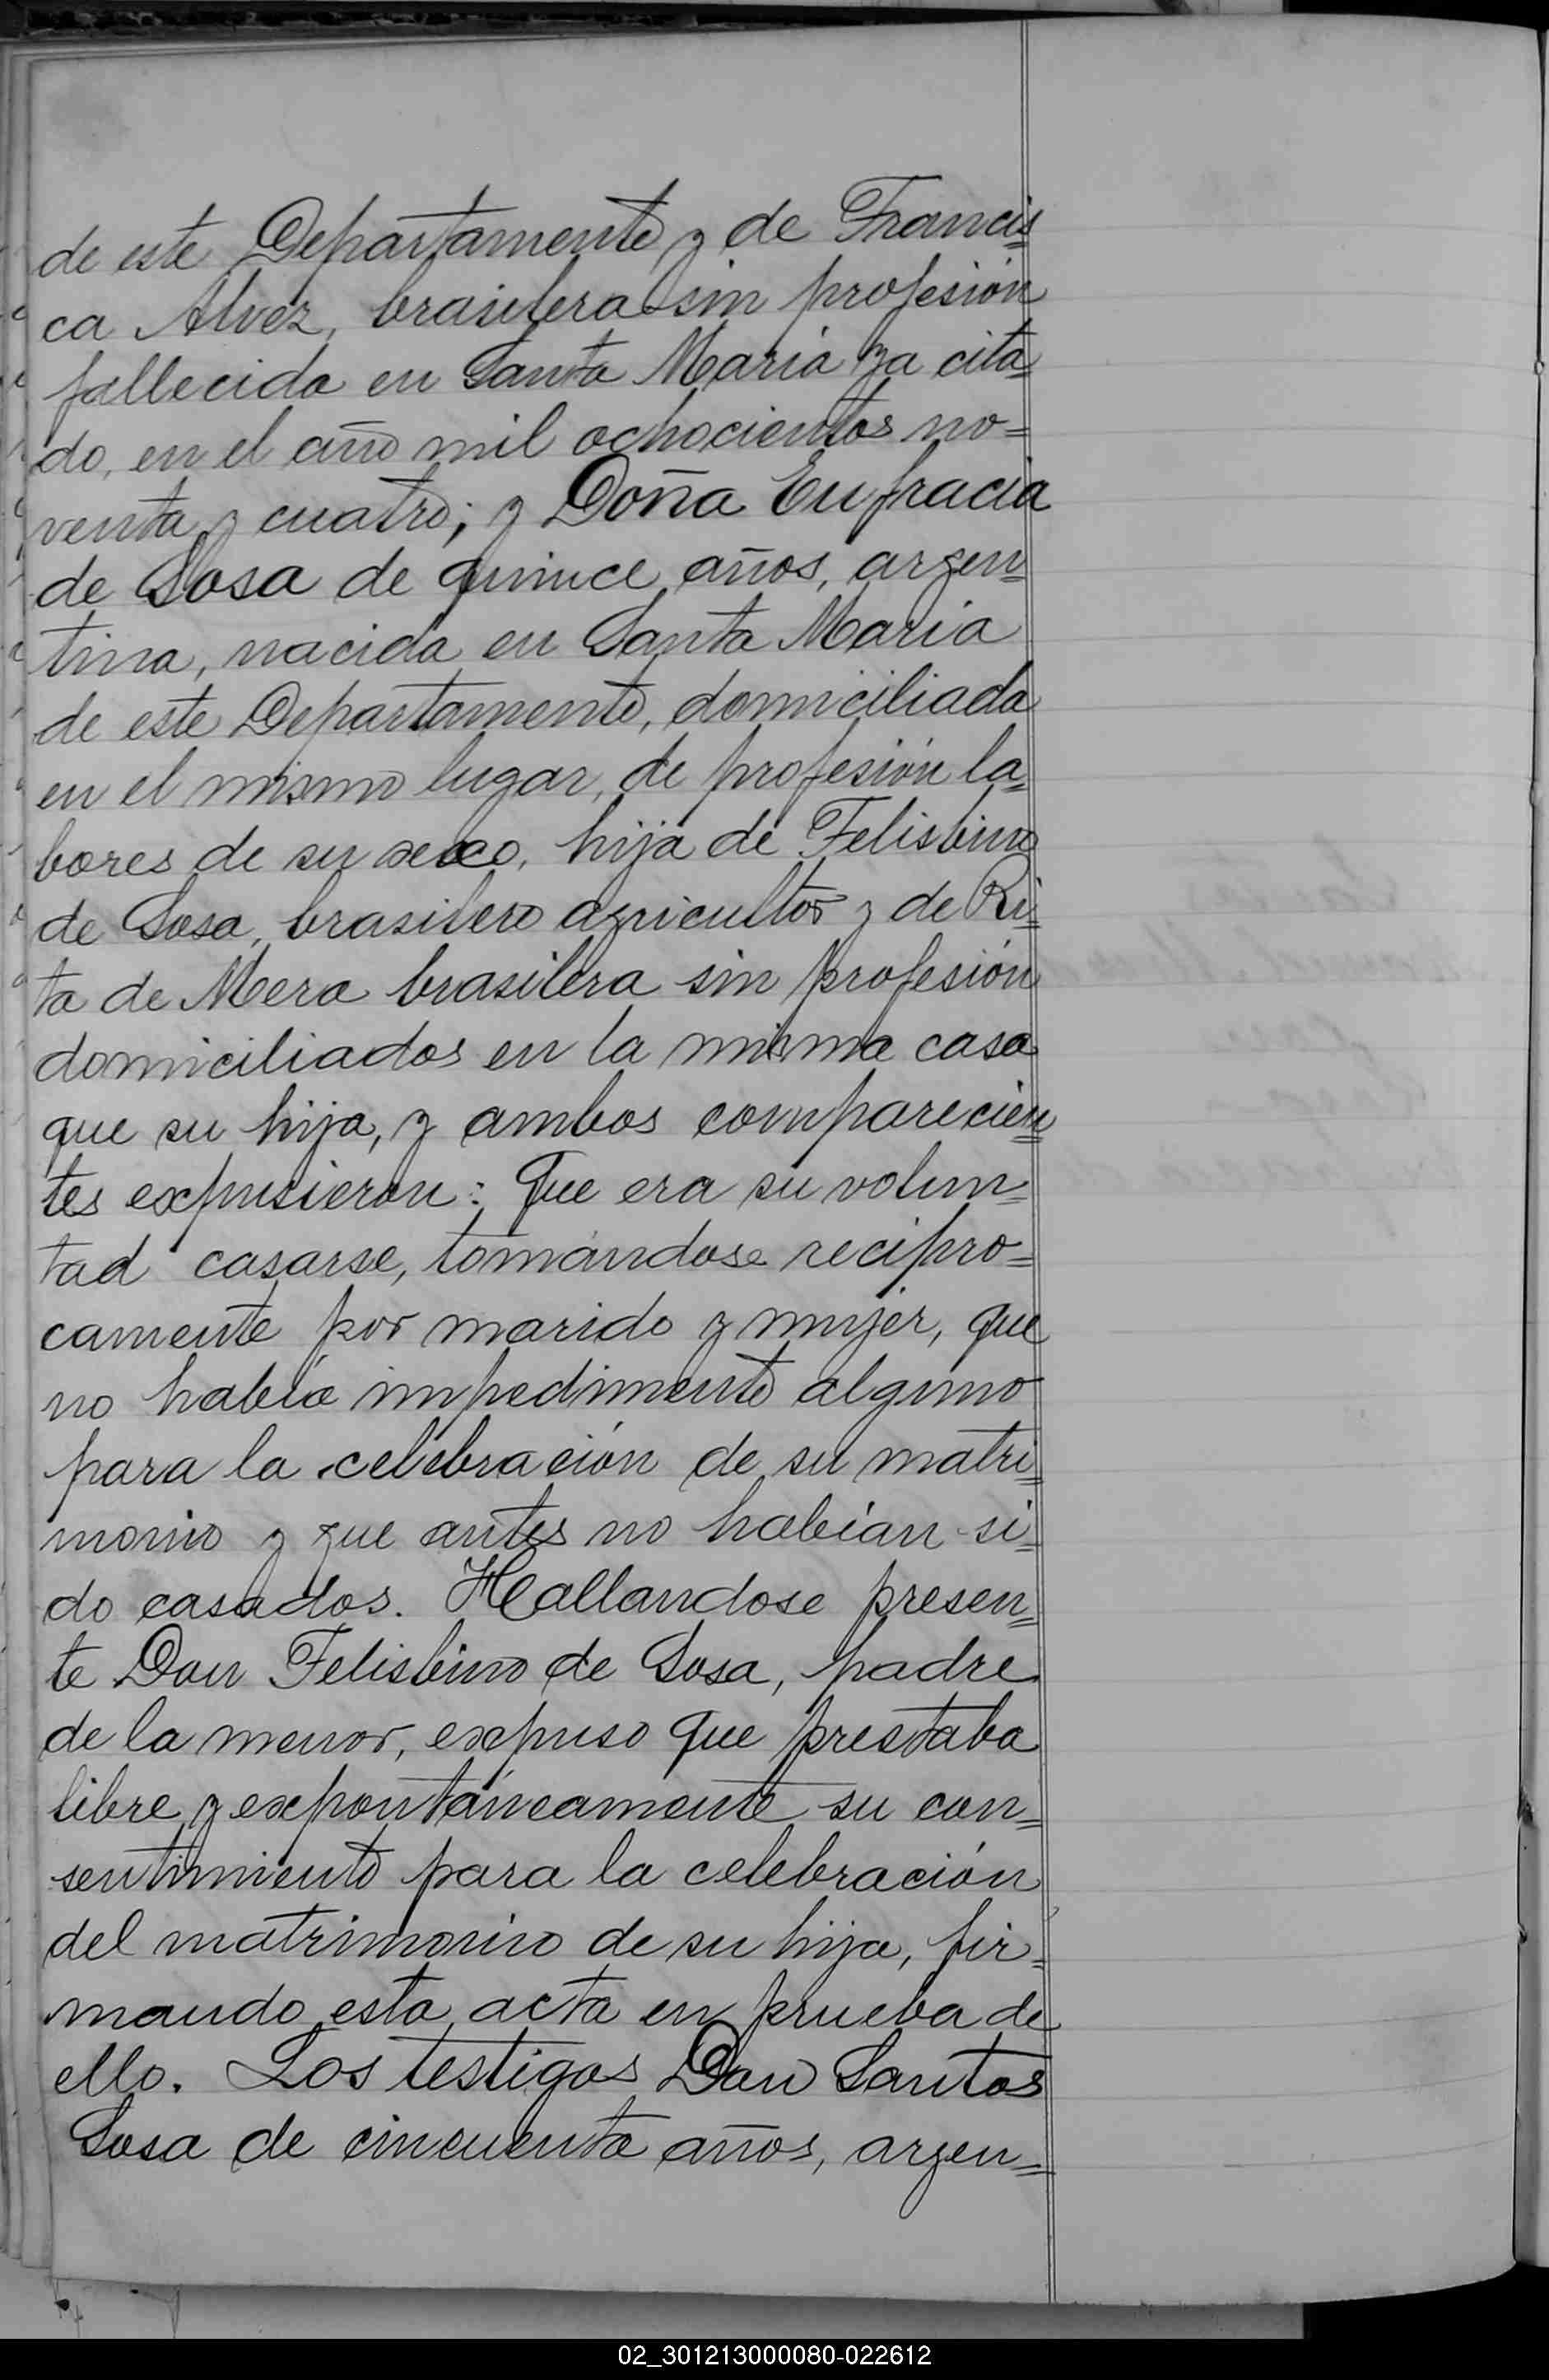 de este Departamento y de Francis=
ca Alvez, brasilera sin profesión
fallecida en Santa María ya cita=
do, en el año mil ochocientos no=
venta y cuatro; y Doña Eufracia
de Sosa de quince años, argen=
tina, nacida en Santa María
de este Departamento, domiciliada
en el mismo lugar, de profesión la=
bores de su sexo, hija de Felisbino
de Sosa, brasilero agricultor y de Ri=
ta de Mera brasilera sin profesión
domiciliados en la misma casa
que su hija, y ambos comparecien=
tes expusieron: Que era su volun=
tad casarse, tomándose recipro=
camente por marido y mujer, que
no había impedimento alguno
para la celebración de su matri=
monio y que antes no habían si=
do casados. Hallandose presen=
te Don Felisbino de Sosa, padre
de la menor, expuso que prestaba
libre y expontáneamente su con=
sentimiento para la celebración
del matrimonio de su hija, fir=
mando esta acta en prueba de
ello. Los testigos Don Santos
Sosa de cincuenta años, argen=
02_301213000080-022612